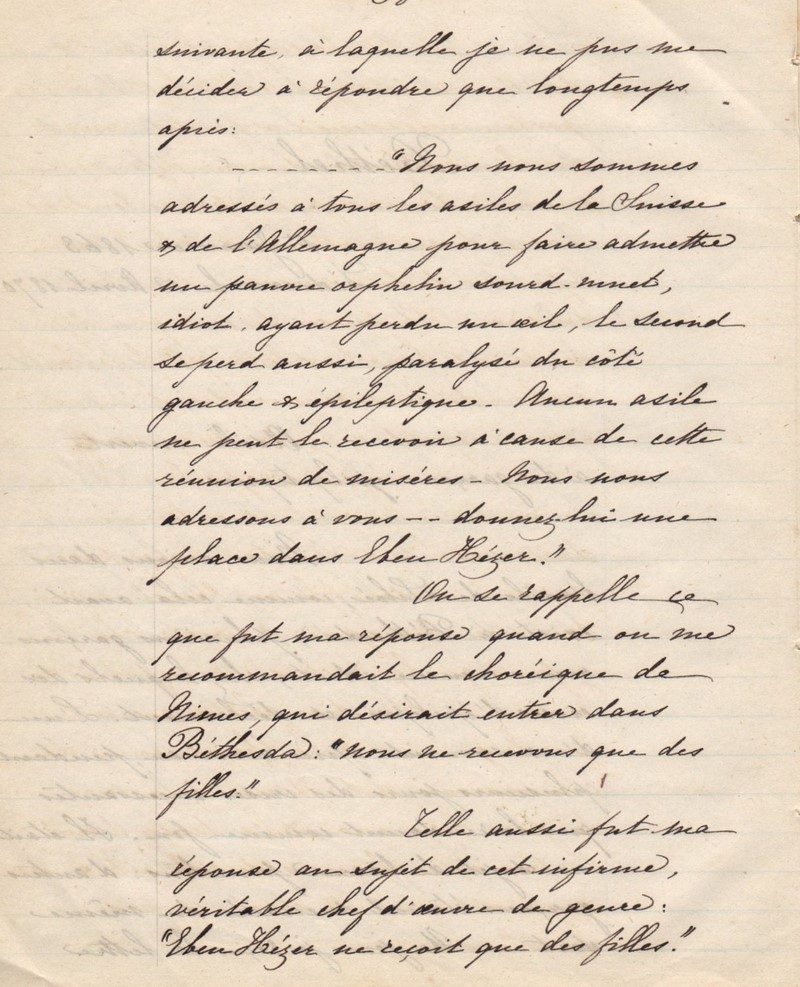 suivante, à laquelle je ne pus me
décider à répondre que longtemps
après:
- - - - - - - - "Nous nous sommes
adressés à tous les asiles de la Suisse
& de l'Allemagne pour faire admettre
un pauvre orphelin sourd-muet,
idiot, ayant perdu un œil, le second
se perd aussi, paralysé du côté
gauche & épileptique - Aucun asile
ne peut le recevoir à cause de cette
réunion de miséres - Nous nous
adressons à vous -- donnez-lui une
place dans Eben Hézer."
On se rappelle ce
que fut ma réponse quand on me
recommandait le choréique de
Nimes, qui désirait entrer dans
Béthesda: "nous ne recevons que des
filles."
Telle aussi fut ma
réponse au sujet de cet infirme,
véritable chef d'œuvre de genre:
"Eben Hézer ne reçoit que des filles."